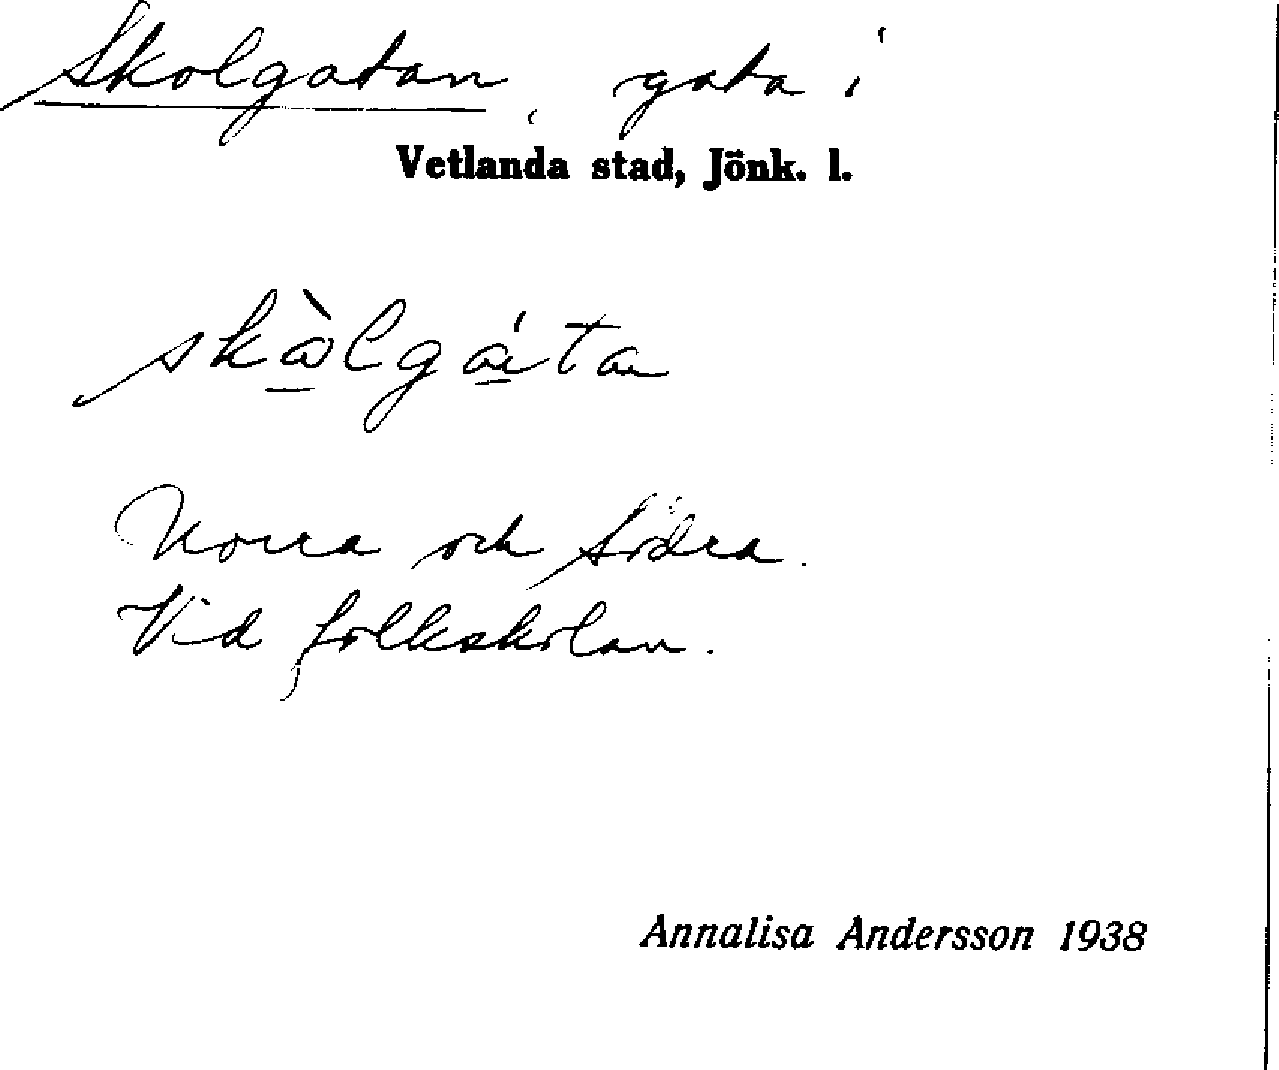 Skolgatan, gata i
Vetlanda stad, Jönk. l.
skòlgáta
Norra och Södra.
Vid folkskolan.
Annalisa Andersson 1938